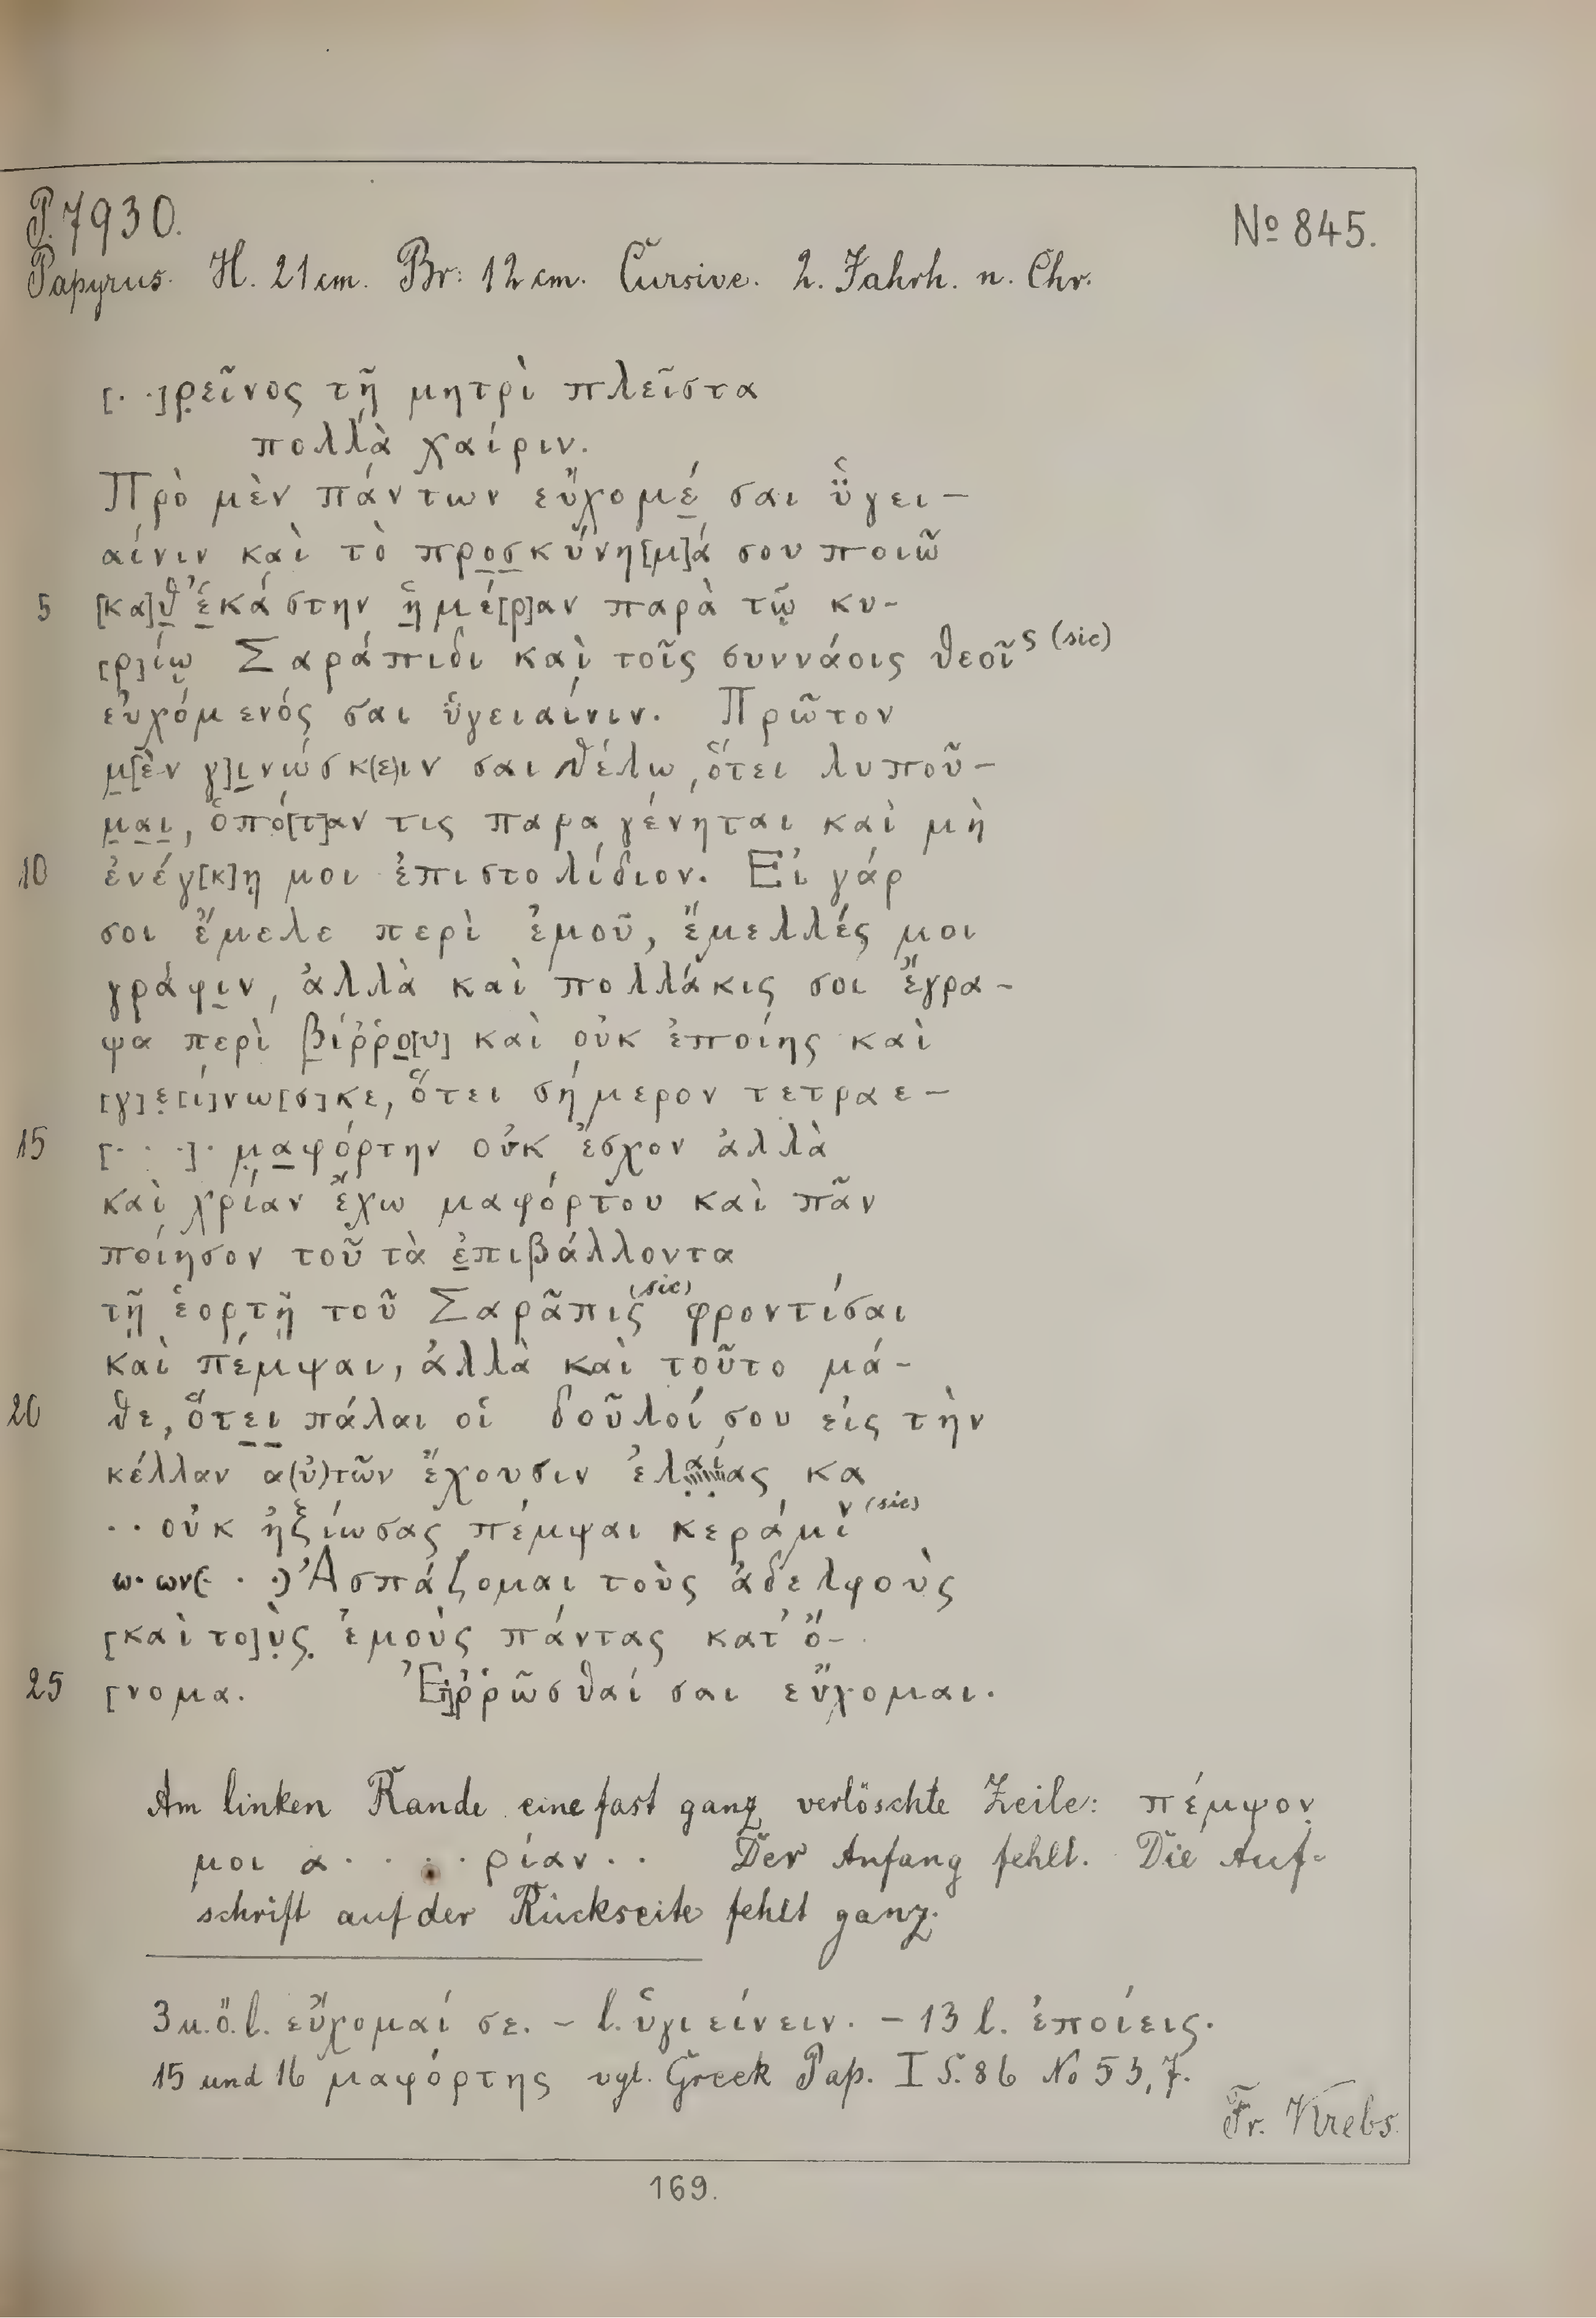 P. 7930.
No 845.
Papyrus. H. 21 cm. Br: 12 cm. Cursive. 2. Jahrh. n. Chr.
[. .]ρ̣εῖνος τῇ μητρὶ πλεῖστα
πολλὰ χαίριν.
Πρὸ μὲν πάντων εὔχομέ σαι ὑ̈γει-
αίνιν καὶ τὸ προσκύνη[μ]ά σου ποιῶ
5 [κα]θ' ἑκάστην ἡμέ[ρ]αν παρὰ τῷ κυ-
[ρ]ίῳ Σαράπιδι καὶ τοῖς συννάοις θεοῖς (sic)
εὐχόμενός σαι ὑ̈γειαίνιν. Πρῶτον
μ[ὲν γ]ινώσκ(ε)ιν σαι θέλω, ὅτει λυποῦ-
μαι, ὁπό[τ]αν τις παραγένηται καὶ μὴ
10 ἐνέγ[κ]ῃ μοι ἐπιστολίδιον. Εἰ γάρ
σοι ἔμελε περὶ ἐμοῦ, ἔμελλές μοι
γράφιν, ἀλλὰ καὶ πολλάκις σοι ἔγρα-
ψα περὶ βίῤῥο[υ] καὶ οὐκ ἐποίης καὶ
[γ]ε̣[ί]νω[σ]κε, ὅτει σήμερον τετραε-
15 [. . .]. μ̣αφόρτην οὐκ ἔσχον ἀλλὰ
καὶ χρίαν ἔχω μαφόρτου καὶ πᾶν
ποίησον τοῦ τὰ ἐπιβάλλοντα
τῇ ἑορτῇ τοῦ Σαρᾶπις (sic) φροντίσαι
καὶ πέμψαι, ἀλλὰ καὶ τοῦτο μά-
20 θε, ὅτει πάλαι οἱ δοῦλοί σου εἰς τὴν
κέλλαν α(ὐ)τῶν ἔχουσιν ἐλαίας κα
. . οὐκ ἠξίωσας πέμψαι κεράμιν (sic)
ω. ων(. . .) Ἀσπάζομαι τοὺς ἀδελφοὺς
[καὶ το]ὺ̣ς̣ ἐμοὺς πάντας κατ' ὄ-
25 [νομα. Ἐ]ῤῥῶσθαί σαι εὔχομαι.
Am linken Rande eine fast ganz verlöschte Zeile: πέμψον̣
μοι α . . . . ρίαν . . Der Anfang fehlt. Die Auf-
schrift auf der Rückseite fehlt ganz.
3 u. ö. l. εὔχομαί σε. – l. ὑγιείνειν. – 13 l. ἐποίεις.
15 und 16 μαφόρτης vgl. Greek Pap. I S. 86 No 53, 7.
Fr. Krebs.
169.